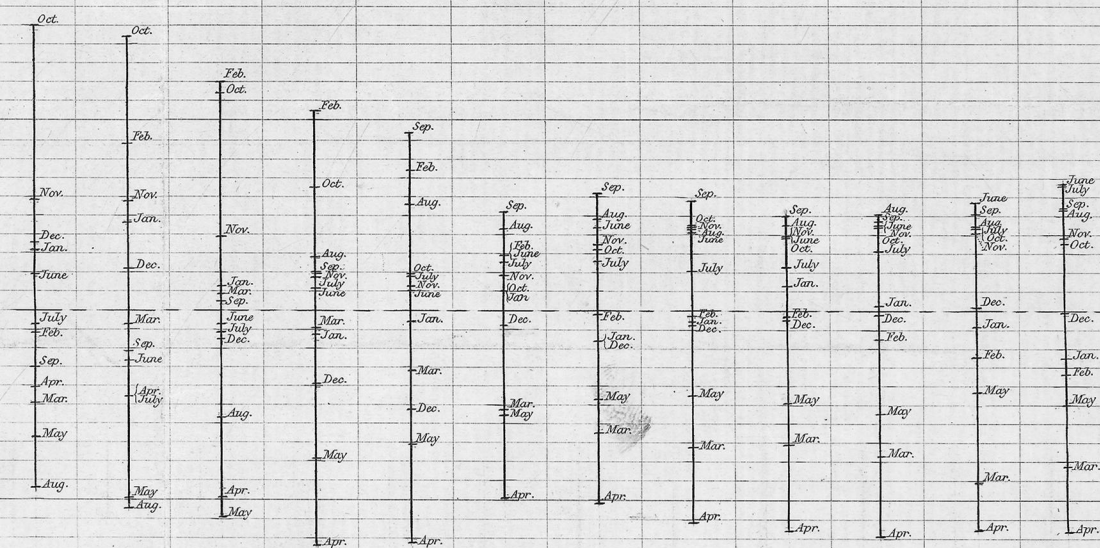 Oct.
Nov.
Dec.
Jan.
June
July
Feb.
Sep.
Apr.
Mar.
May
Aug.
Oct.
Feb.
Nov.
Jan.
Dec.
Mar.
Sep.
June
Apr.
July
May
Aug.
Feb.
Oct.
Nov.
Jan.
Mar.
Sep.
June
July
Dec.
Aug.
Apr.
May
Feb.
Oct.
Aug.
Sep.
Nov.
July
June
Mar.
Jan.
Dec.
May
Apr.
Sep.
Feb.
Aug.
Oct.
July
Nov.
June
Jan.
Mar.
Dec.
May
Apr.
Sep.
Aug.
Feb.
June
July
Nov.
Oct.
Jan
Dec.
Mar.
May
Apr.
Sep.
Aug.
June
Nov.
Oct.
July
Feb.
Jan.
Dec.
May
Mar.
Apr.
Sep.
Oct.
Nov.
Aug.
June
July
Feb.
Jan.
Dec.
May
Mar.
Apr.
Sep.
Aug.
Nov.
June
Oct.
July
Jan.
Feb.
Dec.
May
Mar.
Apr.
Aug.
Sep.
June
Nov.
Oct.
July
Jan.
Dec.
Feb.
May
Mar.
Apr.
June
Sep.
Aug
July
Oct.
Nov.
Dec.
Jan.
Feb.
May
Mar.
Apr.
June
July
Sep.
Aug.
Nov.
Oct.
Dec.
Jan.
Feb.
May
Mar.
Apr.